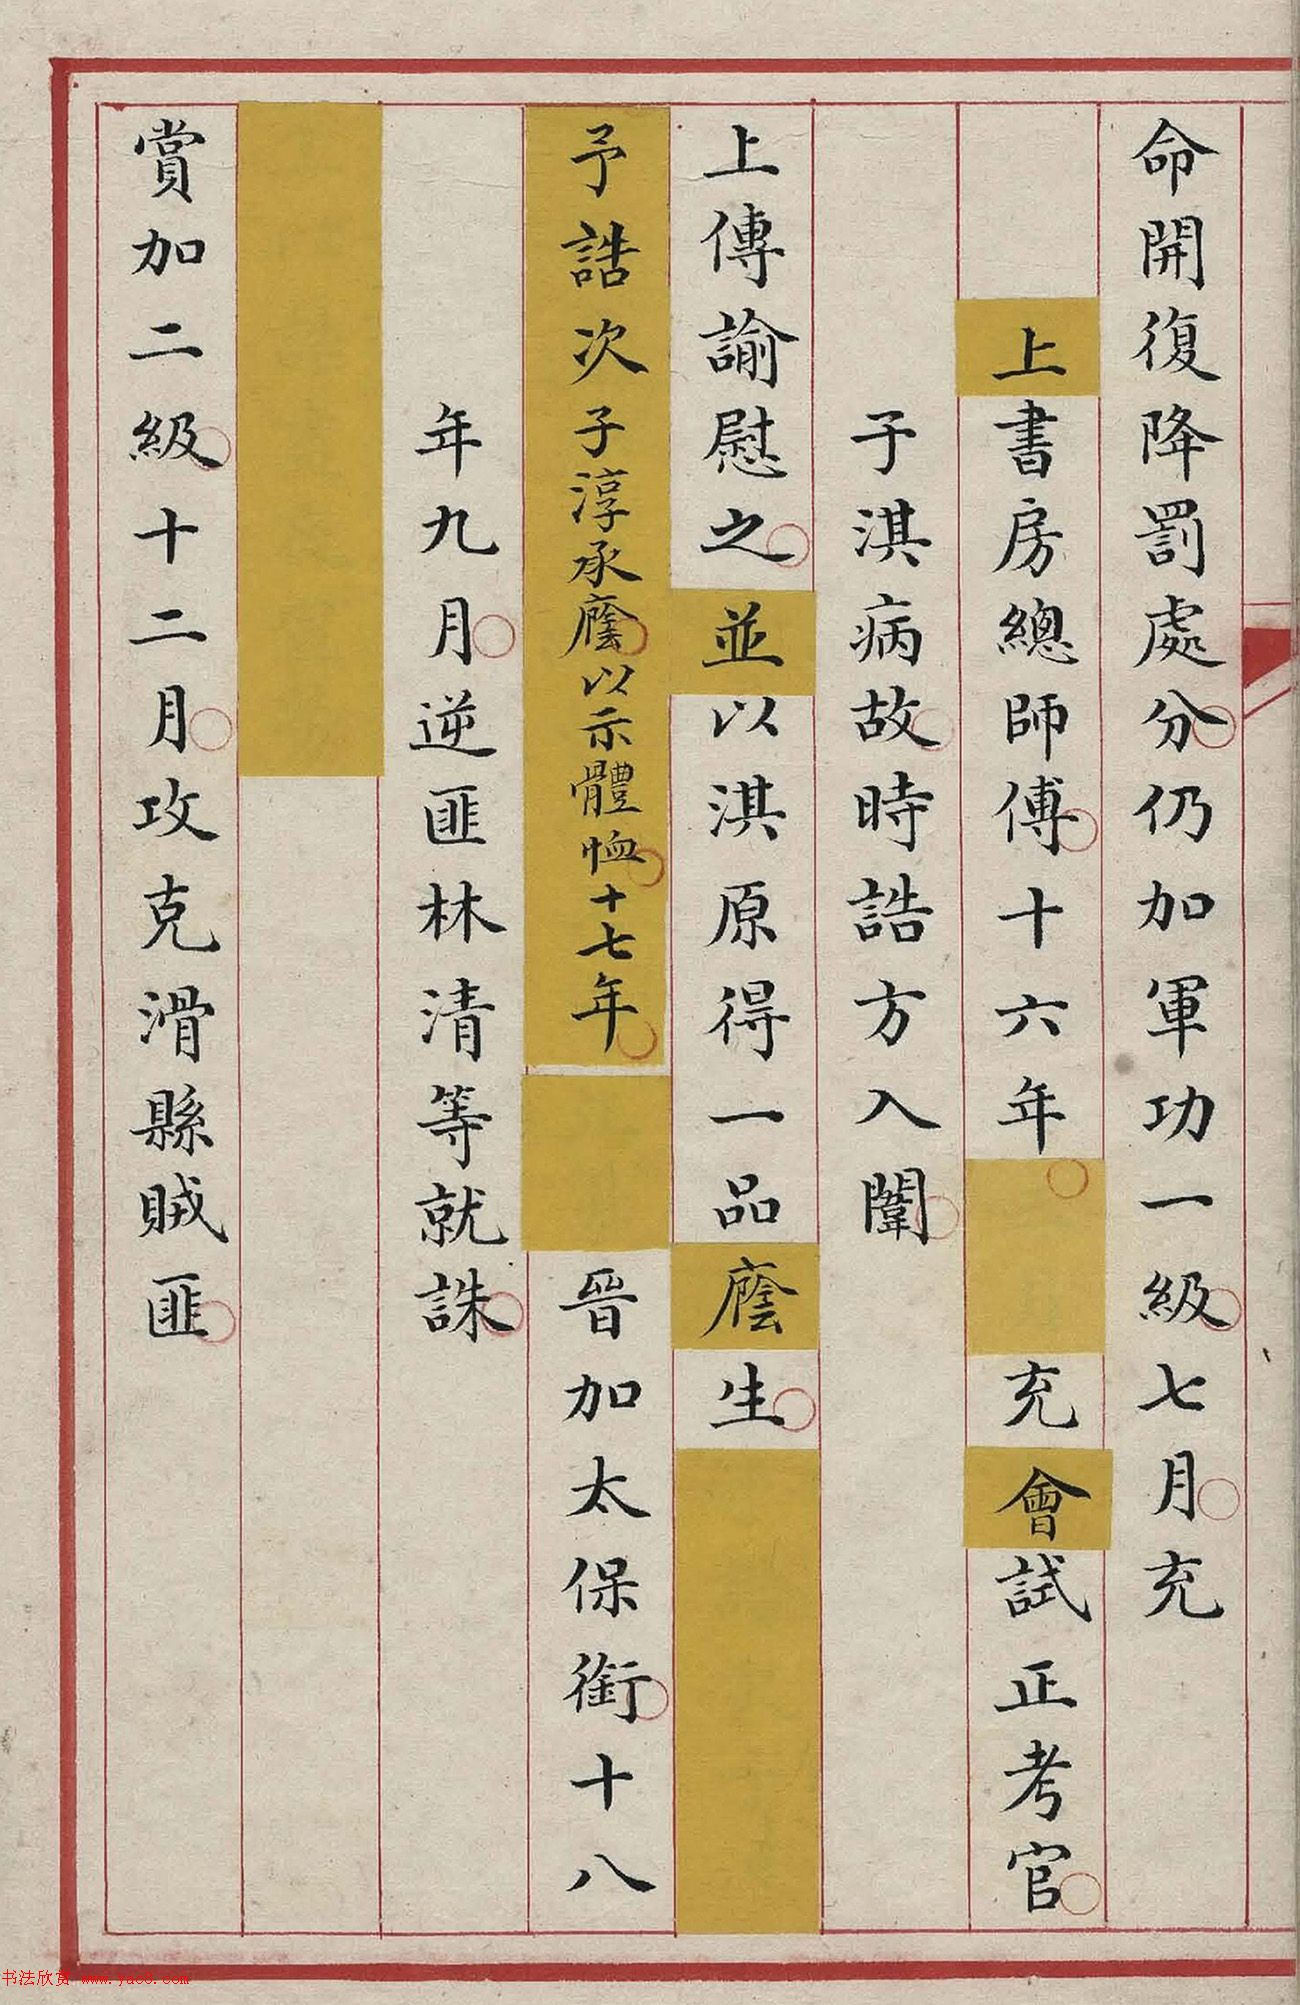 命開復降罰處分仍加軍功一級七月充
上書房總師傅十六年充會試正考官
子淇病故時誥方入闈
上傳諭慰之並以淇原得一品廕生
予誥次子淳承廕以示體恤十七年晉加太保銜十八
年九月逆匪林清等就誅
賞加二級十二月攻克滑縣賊匪
书法欣赏 www.yac8.com